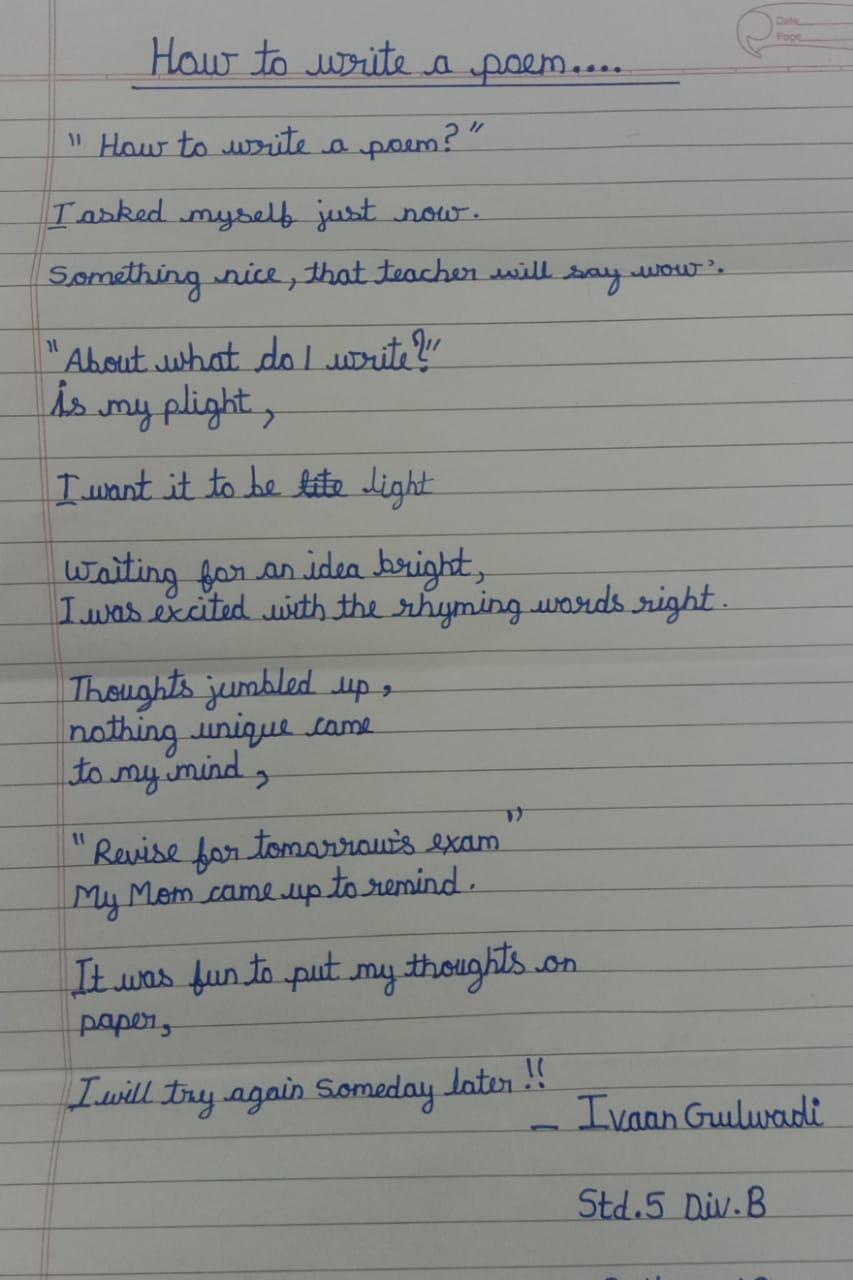 Date
Page
How to write a poem....
"How to write a poem?"
I asked myself just now.
Something nice, that teacher will say 'wow'.
"About what do I write?"
is my plight,
I want it to be lite light
Waiting for an idea bright,
I was excited with the rhyming words right.
Thoughts jumbled up,
nothing unique came
to my mind,
"Revise for tomorrow's exam"
My Mom came up to remind.
It was fun to put my thoughts on
paper,
I will try again Someday later!!
- Ivaan Gulwadi
Std.5 Div.B